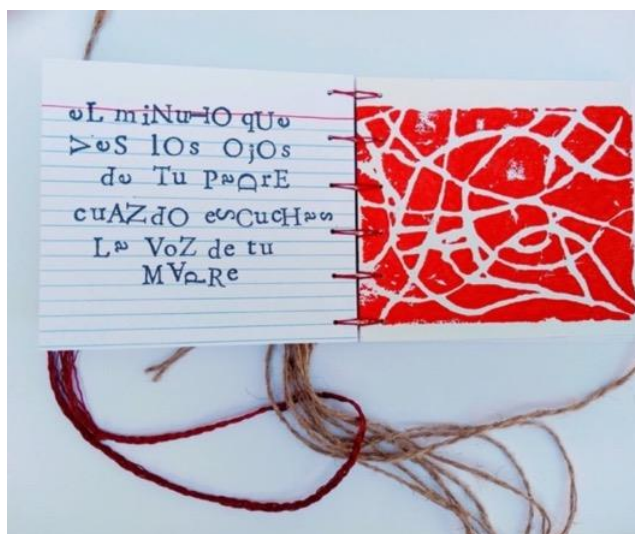 eL miNutO qUe
VeS lOs OjOs
de Tu PaDrE
cuANdO eSCucHas
La VoZ de tu
MADRe